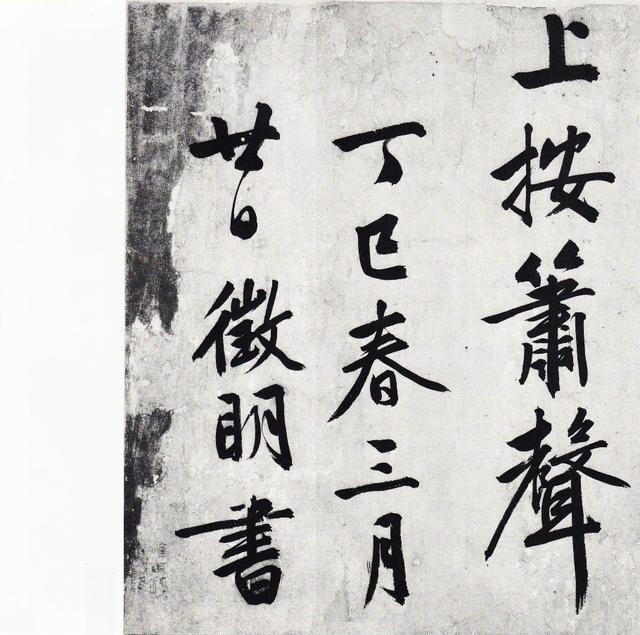 上按簫聲
丁巳春三月
廿日徵明書